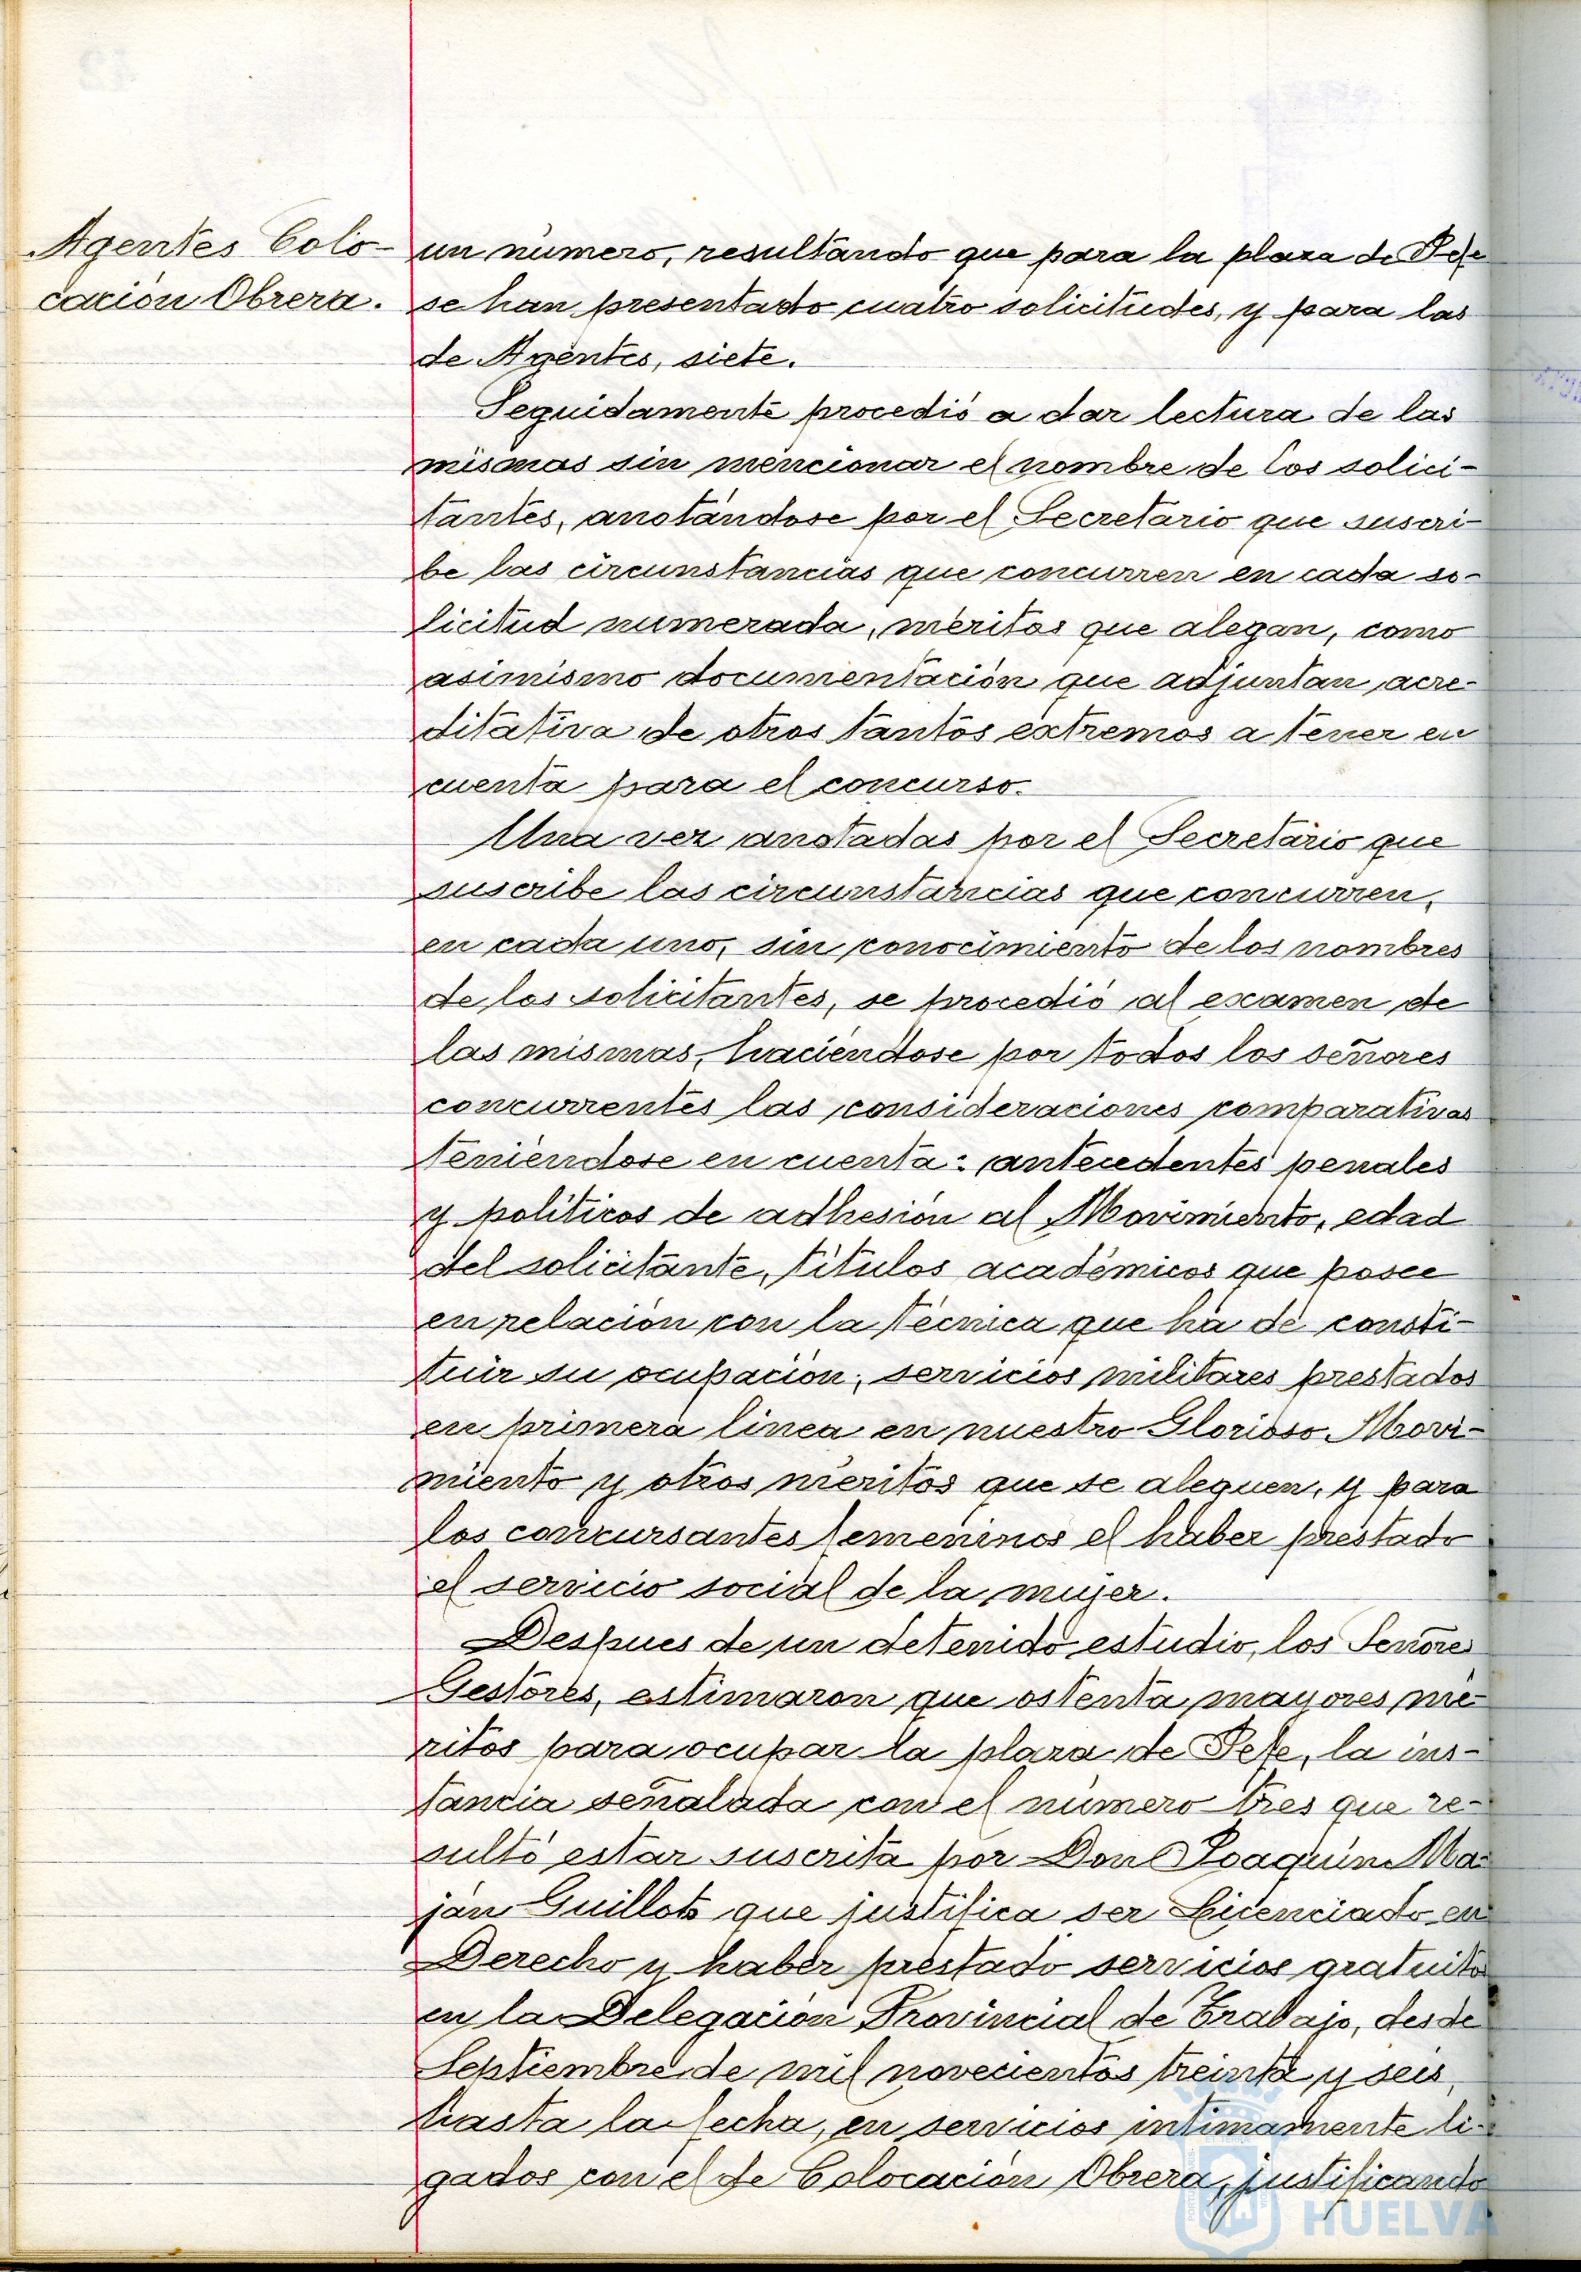 Agentes Colo-
cación Obrera.
un número, resultando que para la plaza de Jefe
se han presentado cuatro solicitudes, y para las
de Agentes, siete.
Seguidamente procedió a dar lectura de las
mismas sin mencionar el nombre de los solici-
tantes, anotándose por el Secretario que suscri-
be las circunstancias que concurren en cada so-
licitud numerada, méritos que alegan, como
asimismo documentación que adjuntan acre-
ditativa de otros tantos extremos a tener en
cuenta para el concurso.
Una vez anotadas por el Secretario que
suscribe las circunstancias que concurren,
en cada uno, sin conocimiento de los nombres
de los solicitantes, se procedió al examen de
las mismas, haciéndose por todos los señores
concurrentes las consideraciones comparativas
teniéndose en cuenta: antecedentes penales
y políticos de adhesión al Movimiento, edad
del solicitante, títulos académicos que posee
en relación con la técnica que ha de consti-
tuir su ocupación, servicios militares prestados
en primera linea en nuestro Glorioso Movi-
miento y otros méritos que se aleguen, y para
los concursantes femeninos el haber prestado
el servicio social de la mujer.
Despues de un detenido estudio, los Señores
Gestores, estimaron que ostenta mayores mé-
ritos para ocupar la plaza de Jefe, la ins-
tancia señalada con el número tres que re-
sultó estar suscrita por Don Joaquín Ma-
ján Guillots que justifica ser Licenciado en
Derecho y haber prestado servicios gratuitos
en la Delegación Provincial de Trabajo, desde
Septiembre de mil novecientos treinta y seis,
hasta la fecha, en servicios intimamente li-
gados con el de Colocación Obrera, justificando
HUELVA